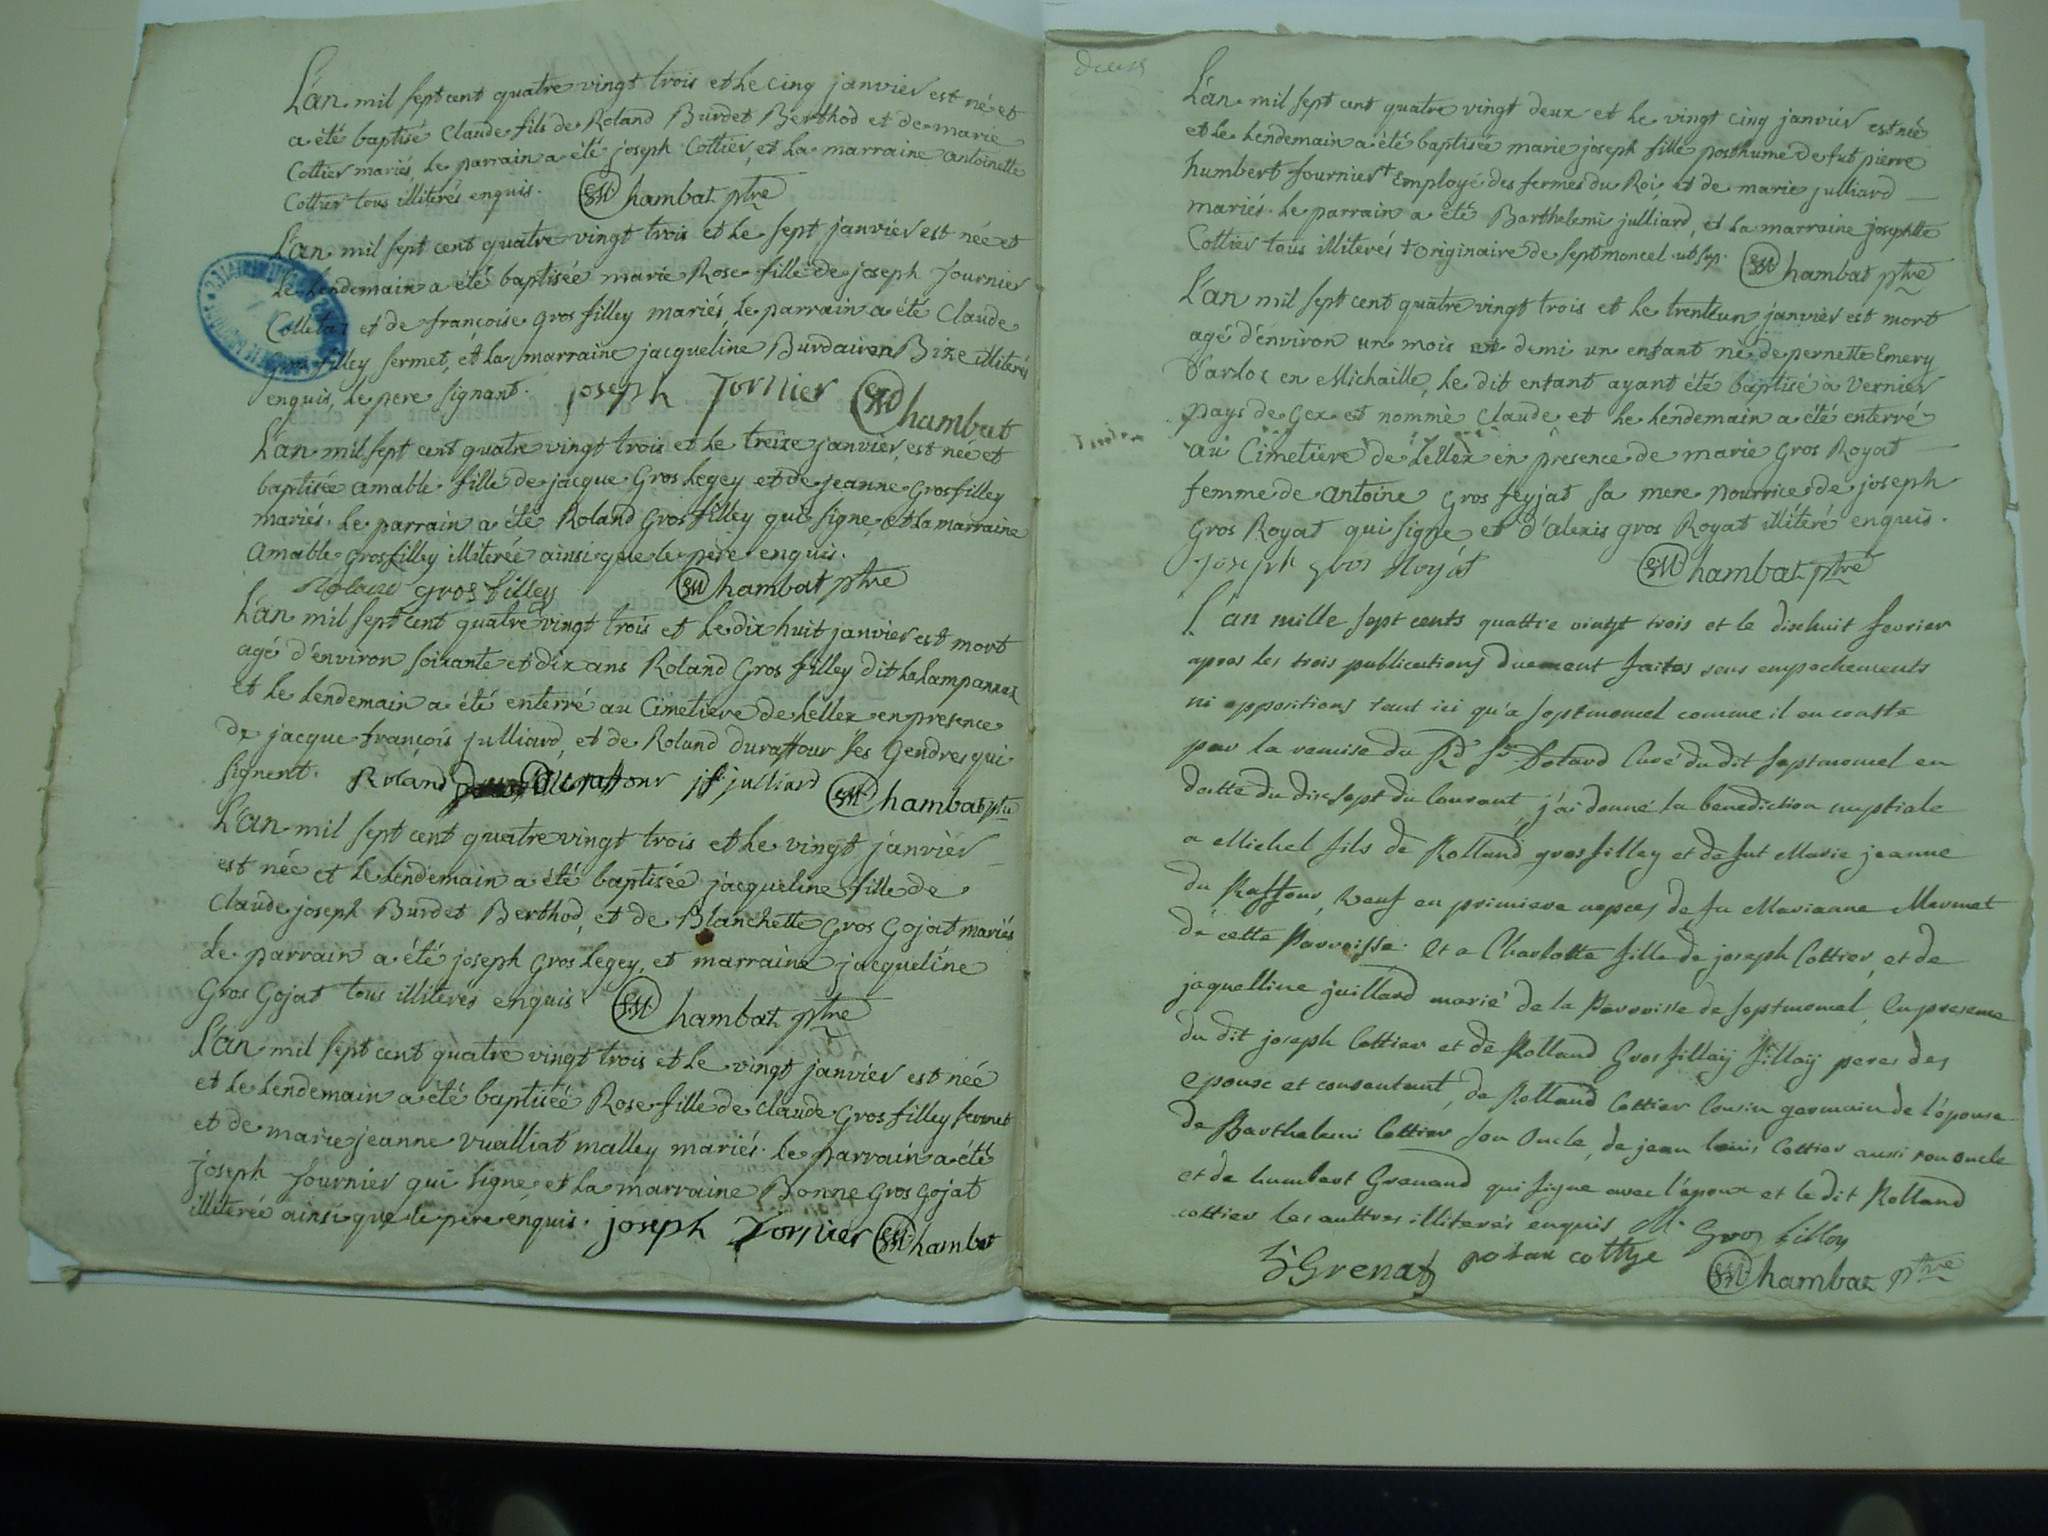 L'an mil sept cent quatre vingt trois et le cinq janvier est né et
a été baptisé Claude fils de Roland Burdet Berthod et de marie
Cottier mariés, le parrain a été joseph Cottier, et la marraine antoinette
Cottier tous illiterés enquis. Chambat ptre
L'an mil sept cent quatre vingt trois et le sept janvier est née et
le lendemain a été baptisée marie Rose fille de joseph fournier
Colletaz et de françoise gros filley mariés, le parrain a été Claude
gros filley fermet, et la marraine jacqueline Burdairon Bize illiterés
enquis, le pere signant. joseph fornier Chambat
L'an mil sept cent quatre vingt trois et le treize janvier, est née et
baptisée amable fille de jacque Gros legey et de jeanne Grosfilley
mariés. le parrain a été Roland Gros filley qui signe, et la marraine
amable grosfilley illiterée ainsi que le père enquis.
Roland gros filley Chambat ptre
L'an mil sept cent quatre vingt trois et le dix huit janvier est mort
agé d'environ soixante et dix ans Roland Gros filley dit
et le lendemain a été enterré au Cimetiere de lellex en presence
de jacque françois julliard, et de Roland duraffour ses Gendres qui
signent. Roland duraffour jf julliard Chambat ptre
L'an mil sept cent quatre vingt trois et le vingt janvier
est née et le lendemain a été baptisée jacqueline fille de
Claude joseph Burdet Berthod, et de Blanchette Gros Gojat mariés
le parrain a été joseph Gros legey, et marraine jacqueline
Gros Gojat tous illiterés enquis. Chambat ptre
L'an mil sept cent quatre vingt trois et le vingt janvier est née
et le lendemain a été baptisée Rose fille de claude Gros filley fermet
et de marie jeanne vualliat malley mariés. le parrain a été
joseph fournier qui signe et la marraine Bonne Gros gojat
illiterée ainsi que le père enquis. joseph fornier Chambat
deux
L'an mil sept cent quatre vingt deux et le vingt cinq janvier est née
et le lendemain a été baptisée marie joseph fille posthume de fut pierre
humbert fournier + Employé des fermes du Roi, et de marie julliard
mariés. le parrain a été Barthelemi julliard, et la marraine josephte
Cottier tous illiterés + originaire de septmoncel ut sup. Chambat ptre
L'an mil sept cent quatre vingt trois et le trenteun janvier est mort
agé d'environ un mois et demi un enfant né de pernette Emery
d'arloz en Michaille, le dit enfant ayant été baptisé à Vernier
pays de Gex et nommé Claude et le lendemain a été enterré
au Cimetiere de Lellex en présence de marie Gros Royat
femme de antoine gros feyjat sa mere nourrice, de joseph
Gros Royat qui signe et d'alexis gros Royat illiteré enquis.
joseph gros Royat Chambat ptre
L'an mille sept cents quattre vingt trois et le dixhuit fevrier
apres les trois publications duement faites sens empechements
ni oppositions tant ici qu'a septmoncel comme il en conste
par la remise du Rd Sr Curé du dit septmoncel en
datte du dixsept du Courant, j'ai donné la benediction nuptiale
a Michel fils de Rolland gros filley et de fut Marie jeanne
du Raffour, veuf en primiere nopces de fu Marianne Mermet
de cette Parroisse. et a Charlotte fille de joseph Cottier, et de
jaquelline juillard marié de la Parroisse de septmoncel, en presence
du dit joseph Cottier et de Rolland Gros fillaÿ fillaÿ peres des
epouse et consentant, de Rolland Cottier Cousin germain de l'épouse
de Barthelemi Cottier son Oncle, de jean louis Cottier aussi son oncle
et de humbert Grenand qui signe avec l'epoux et le dit Rolland
cottier les auttres illiterés enquis M. Gros filley
h Grenat rolan cottye Chambat ptre